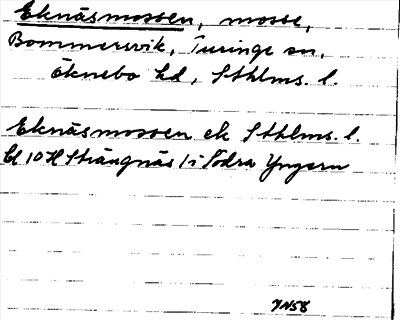 Eknäsmossen, mosse,
Bommersvik, Turinge sn,
Öknebo hd, Sthlms. l.
Eknäsmossen ek Sthlms. l.
bl 10 H Strängnäs /: Södra Yngern